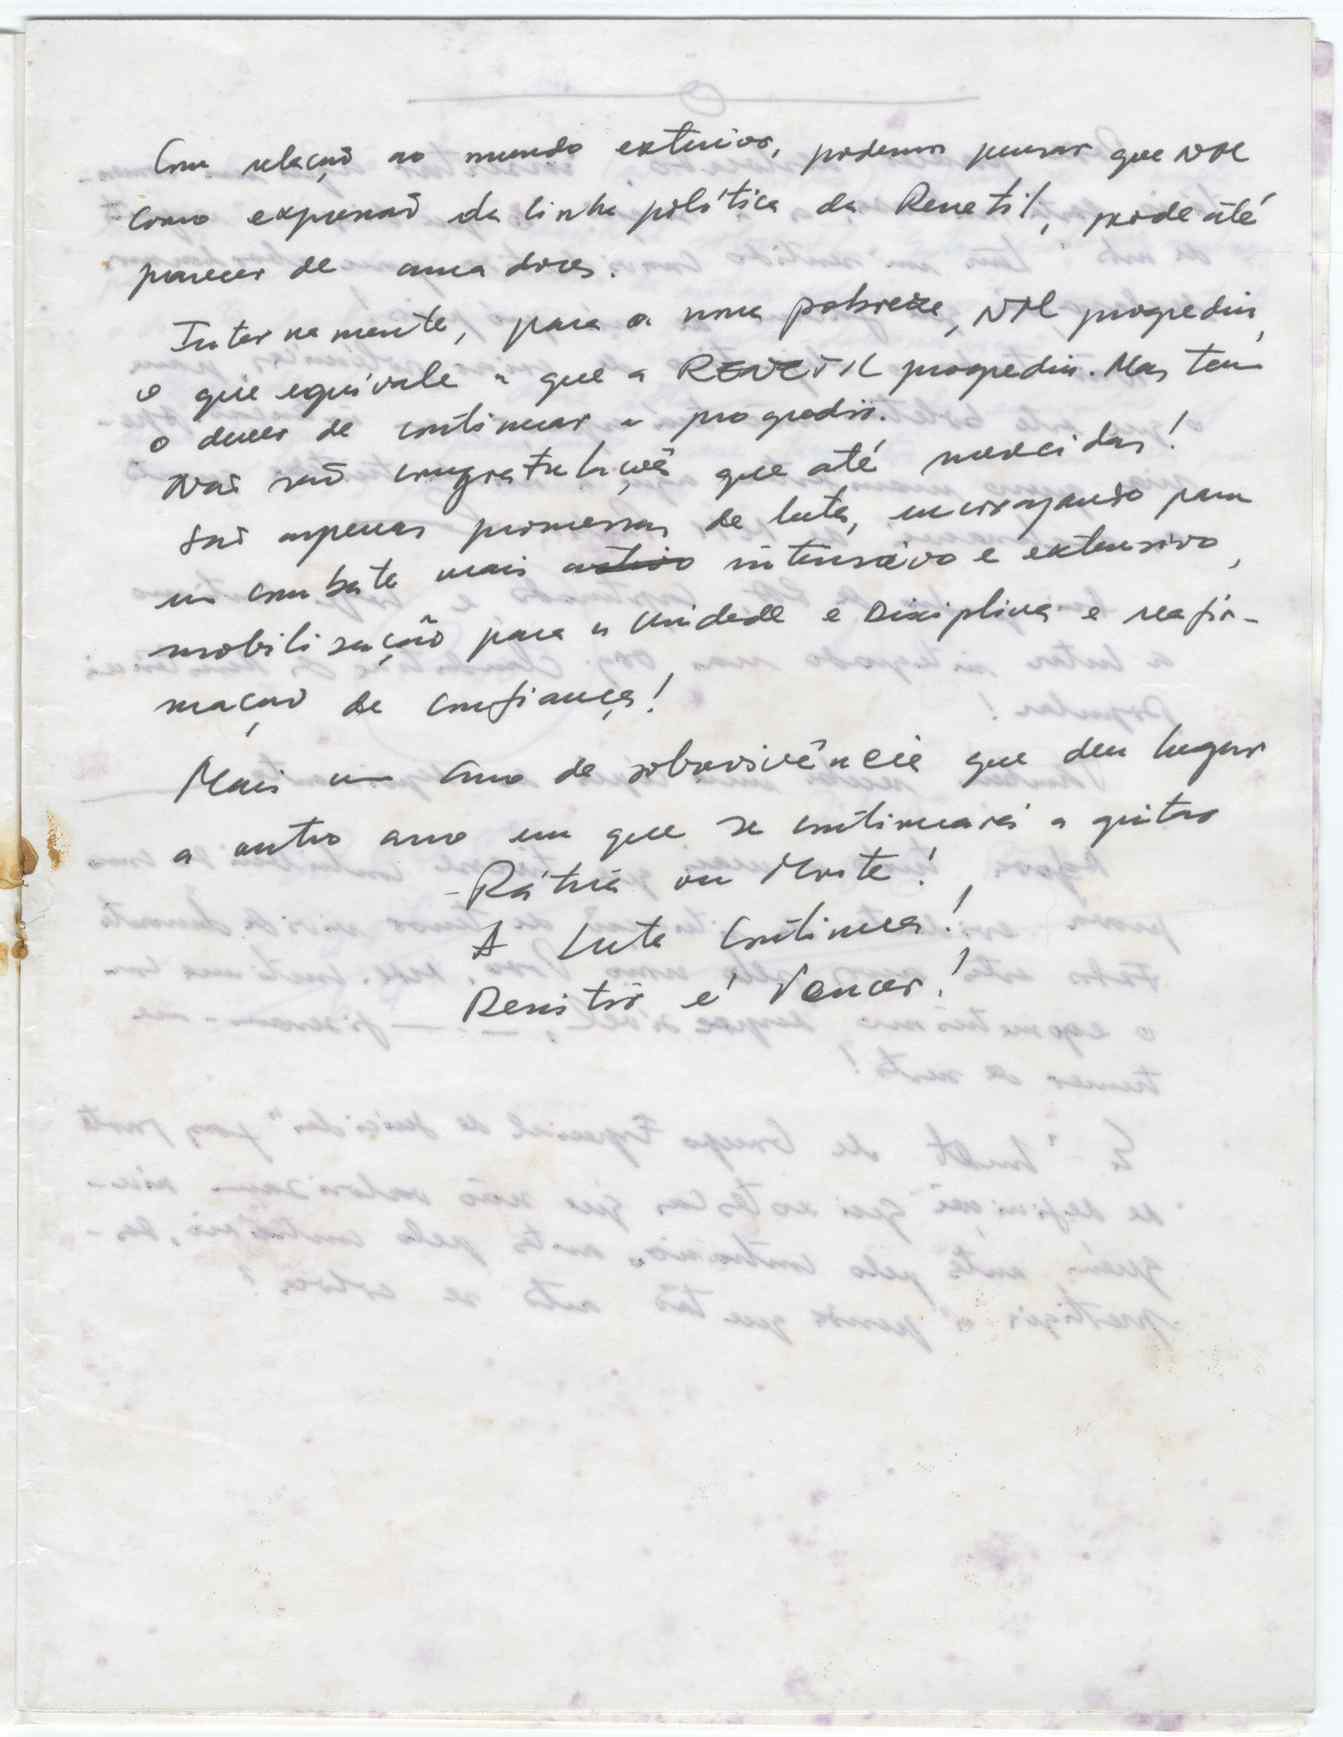 Com relação ao mundo exterior, podemos pensar que NOL
como expressão da linha política da Renetil, pode até
parecer de amadores.
Internamente, para a nossa pobreza, NOL progrediu,
o que equivale a que a RENETIL progrediu. Mas tem
o dever de continuar a progredir.
Não são congratulações que até merecidas!
São apenas promessas de luta, encorajando para
um combate mais activo intensivo e extensivo,
mobilização para a Unidade e Disciplina e reafir-
mação de confiança!
Mais um ano de sobrevivência que deu lugar
a outro ano em que se continuará a gritar
- Pátria ou Morte!
A Luta Continua!
Resistir é Vencer!